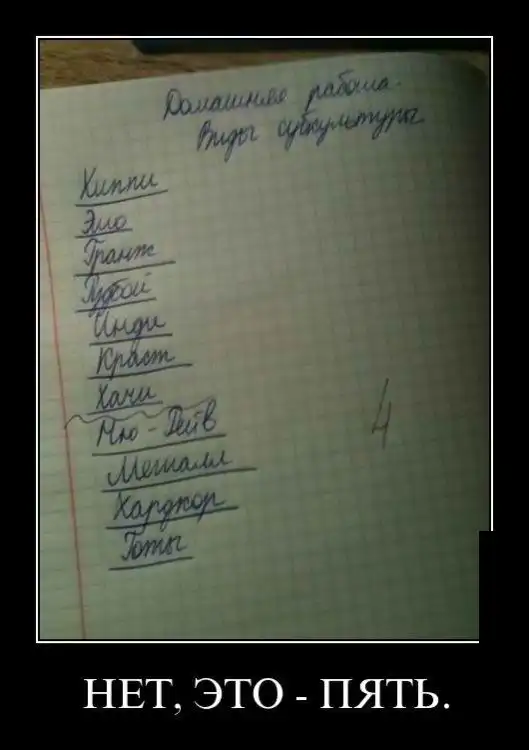 Домашняя работа.
Виды субкультуры
Хиппи
Эмо
Гранж
Рудбой
Инди
Краст
Хачи
Ню-Вейв
Металл
Хардкор
Готы
4
НЕТ, ЭТО - ПЯТЬ.